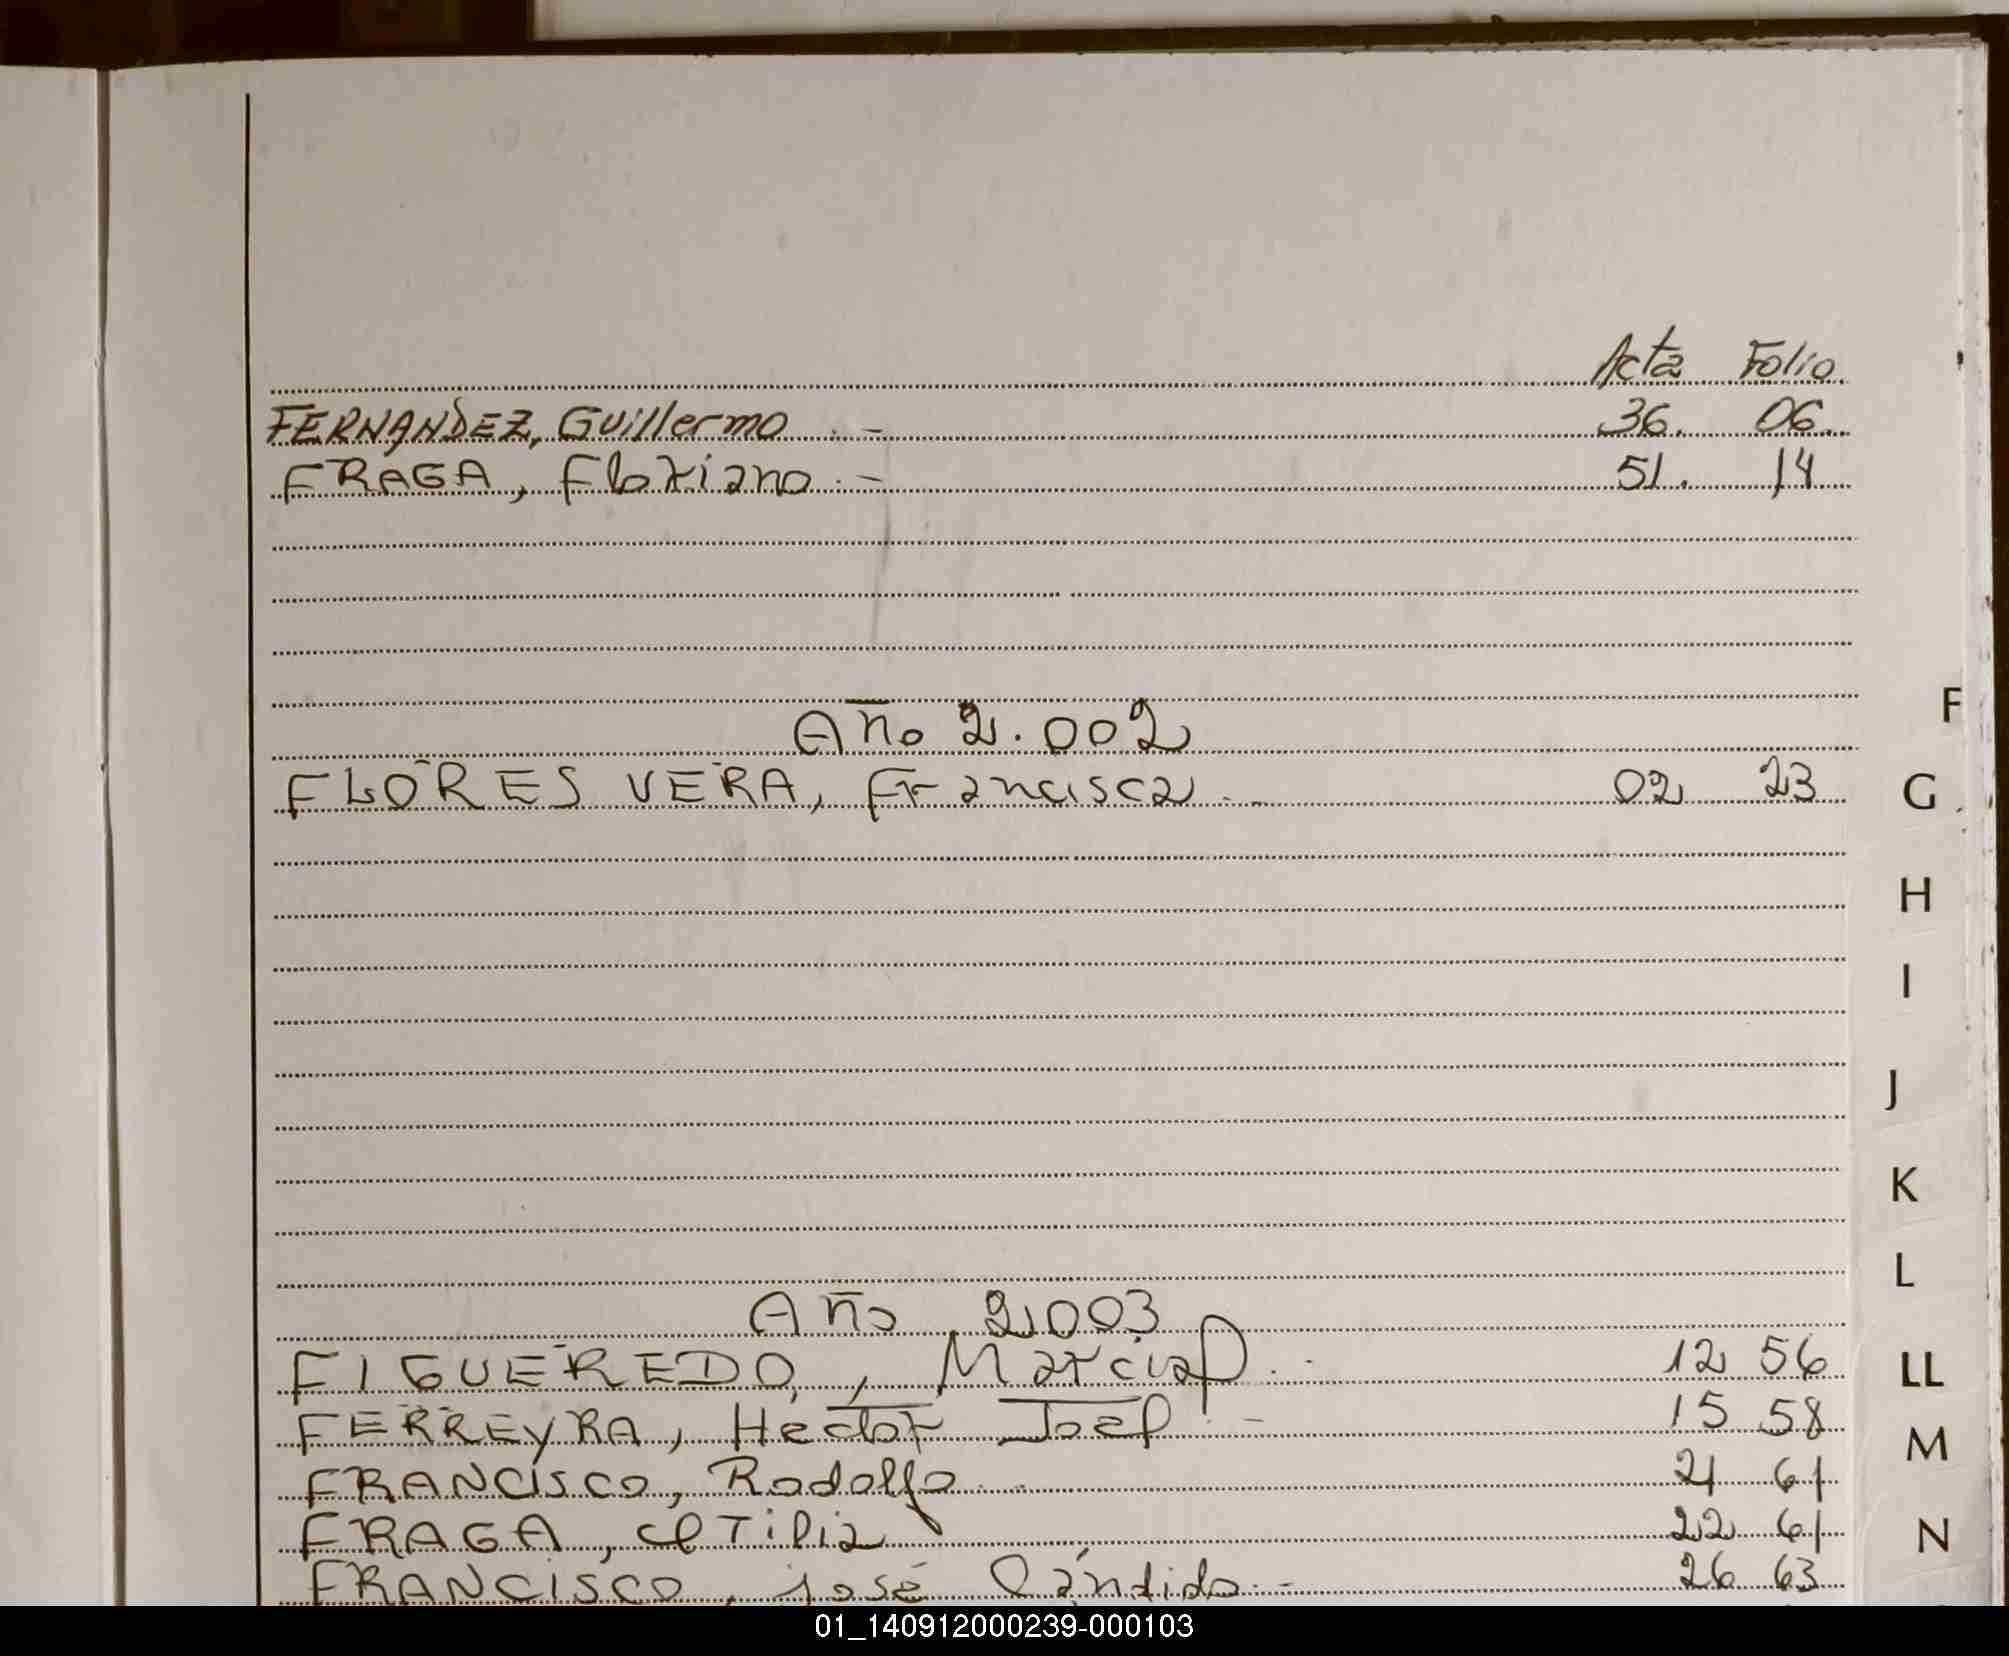 Acta Folio
FERNANDEZ, Guillermo . - 36. 06.
FRAGA, Floriano . - 51. 14
F
Año 2.002
FLORES VERA, Francisca . - 02 23
G
H
I
J
K
L
Año 2.003
FIGUEREDO, Marcial . - 12 56
LL
FERREYRA, Hector José . - 15 58
M
FRANCISCO, Rodolfo . - 21 61
FRAGA, Otilia 22 61
N
FRANCISCO, José Cándido . - 26 63
01_140912000239-000103